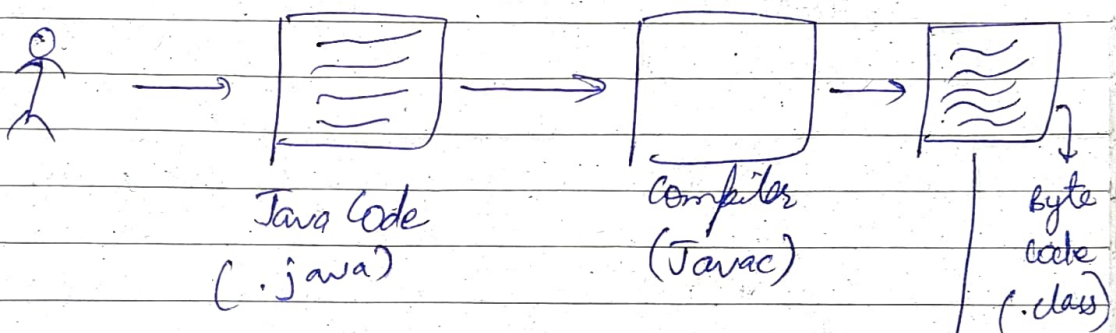 Java Code
(.java)
Compiler
(Javac)
Byte
Code
(.class)